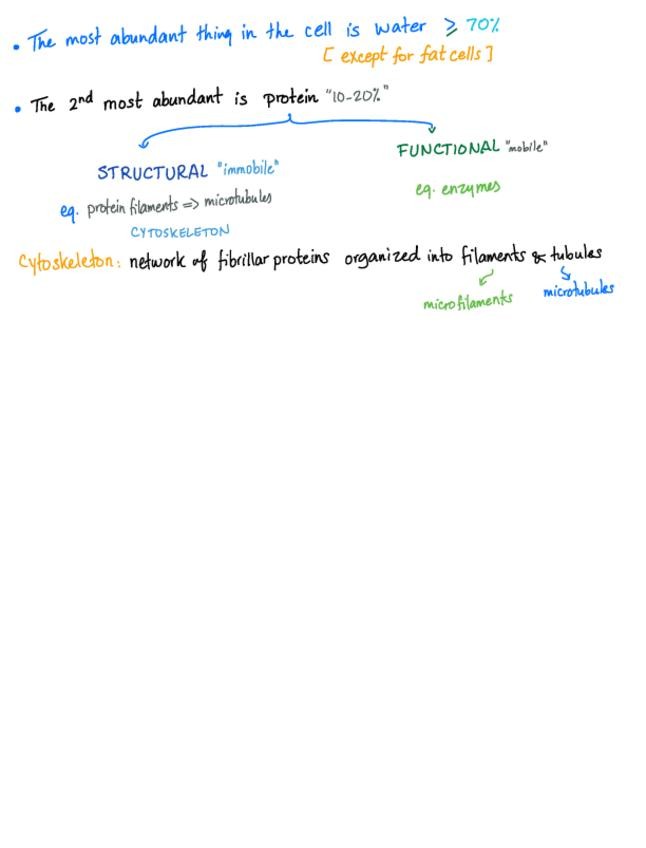 • The most abundant thing in the cell is water ≥ 70%
[ except for fat cells ]
• The 2nd most abundant is protein "10-20%"
STRUCTURAL "immobile"
FUNCTIONAL "mobile"
eg. protein filaments => microtubules
eg. enzymes
CYTOSKELETON
Cytoskeleton: network of fibrillar proteins organized into filaments & tubules
microfilaments
microtubules